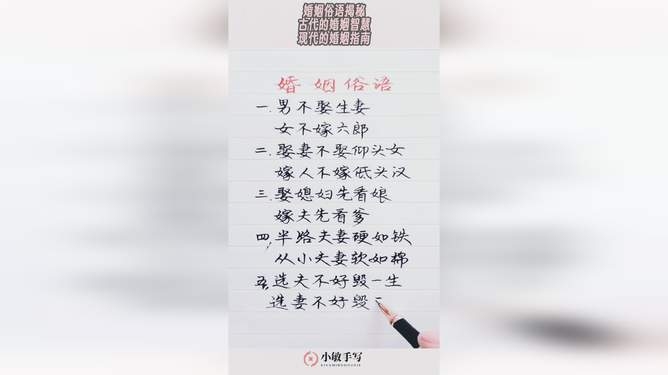 婚姻俗语揭秘
古代的婚姻智慧
现代的婚姻指南
婚姻俗语
一.男不娶生妻
女不嫁六郎
二.娶妻不娶仰头女
嫁人不嫁低头汉
三.娶媳妇先看娘
嫁夫先看爹
四.半路夫妻硬如铁
从小夫妻软如棉
五.选夫不好毁一生
选妻不好毁
小敏手写